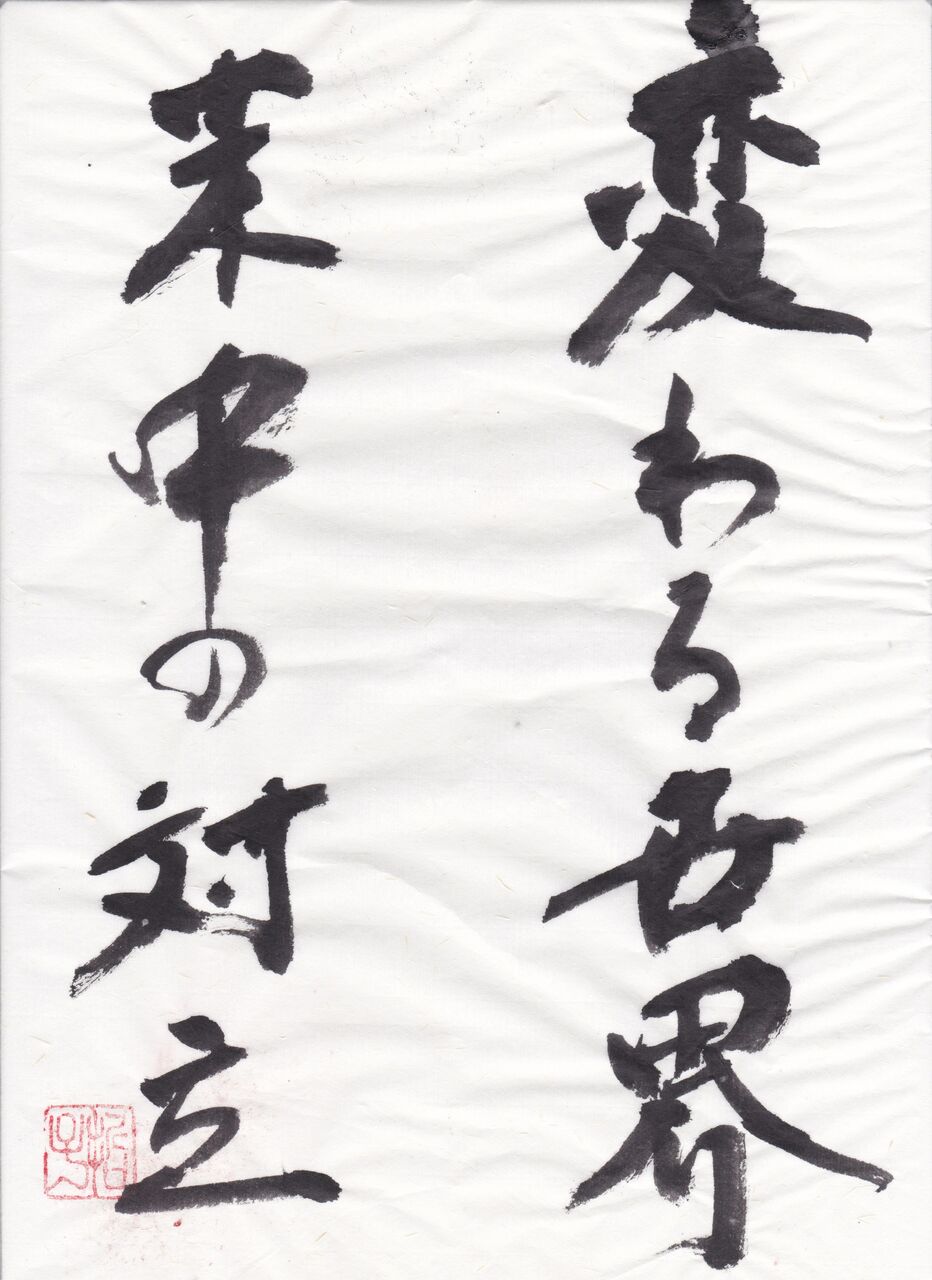 変わる世界
米中の対立